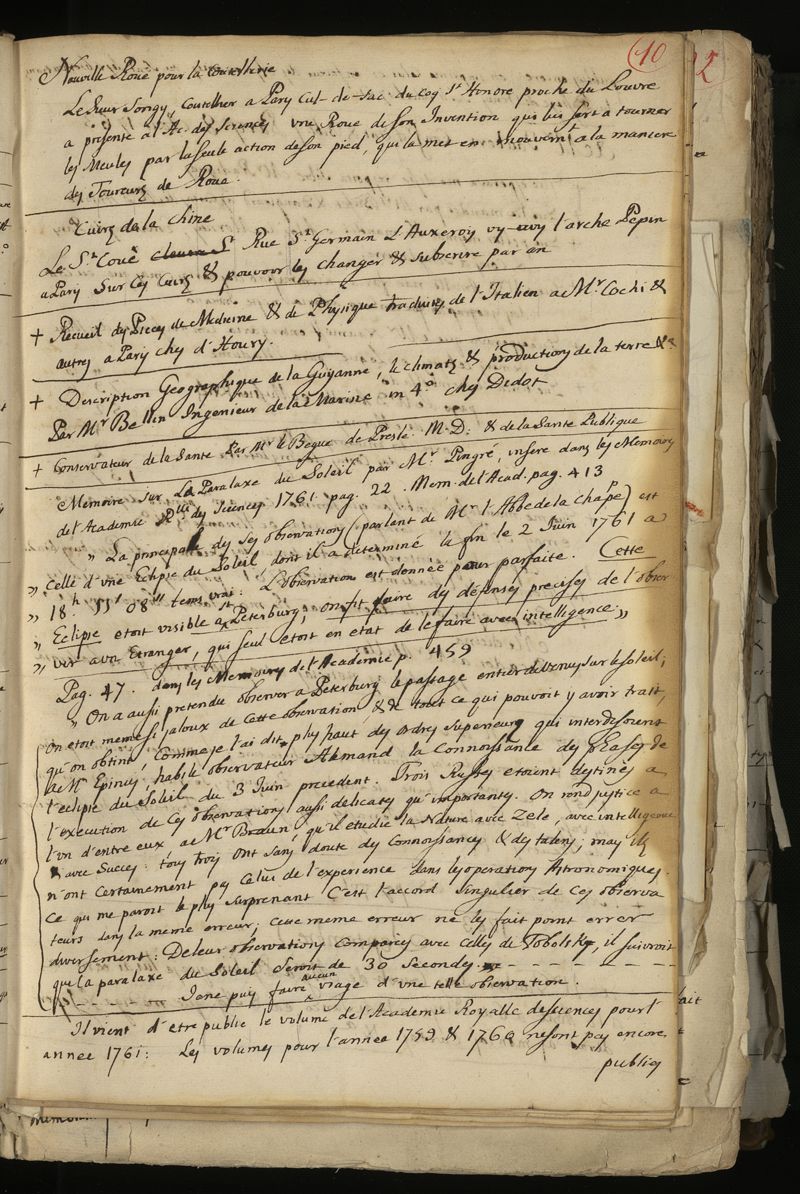 10
Nouvelle Roue pour la Coutellerie
Le Sieur Songy, Coutellier a Pary Cul-de-sac du Coq St Honore proche du Louvre
a presenté a l'Ac. des Sciences une Roue de son Invention qui lui sert a tourner
les Meules par la seule action de son pied, qui la met en mouvemt a la maniere
des Toureurs de Roue.
Cuirs de la Chine
Le Sr Coué Rue St Germain L'Auxeroy vy-avy l'arche Pepin
a Pary Sur Ces Cuirs & pouvoir les changer & subsenre par an
+ Recueil des Pieces de Medicine & de Physique traduites de l'Italien de Mr Cochi &
autres a Pary chez d'Houry.
+ Description Geographique de la Guyanne, le climats & productions de la terre &c
Par Mr Bellin Ingenieur de la Marine in 4o chez Didot
+ Conservateur de la Santé Par Mr le Begue de Presle. M.D: & de la Santé Publique
Memoire sur La Paralaxe du Soleil par Mr. Pingré, inseré dans les Memoires
de l'Academie Rlle des Sciences 1761. pag. 22. Mem. de l'Acad. pag. 413
" La principale de ses observations (parlant de Mr l'Abbé de la Chape) est
" celle d'une Eclipse du Soleil dont il a determiné la fin le 2 Juin 1761 a
" 18h 55' 08'' tems vrai. L'observation est donnée pour parfaite. Cette
" Eclipse etoit visible a St Peterburg; on fit faire des defenses precises de l'obser
" ver a un Etranger, qui seul etoit en etat de le faire avec intelligence "
Pag. 47. dans les Memoires de l'Academie p. 459
" On a aussi pretendu observer a Peterburg le passage entier de Venus sur le soleil;
on etoit meme si jaloux de cette observation, & de tout ce qui pouvoit y avoir trait,
qu'on obtint, comme je l'ai dit plus haut des ordres superieurs qui interdisoient
a Mr Epinus, habile observateur Alemand la Connoissance des Phases de
l'eclipse du Soleil du 3 Juin precedent. Trois Russes etoient destinés a
l'execution de ces observations aussi delicates qu'importantes. On rend justice a
l'un d'entre eux a Mr Braun, qu'il etudie la Nature avec Zele, avec intelligence
avec Succes. tous trois ont sans doute des Connoissances & des talens; mais ils
n'ont Certainement pas Celui de l'experience dans les operations Astronomiques.
Ce qui me paroit le plus surprenant C'est l'accord singulier de Ces observa
teurs dans la meme erreur; cette meme erreur ne les fait point errer
diversement: De leur observations comparées avec celles de Tobolsky, il suivroit
que la paralaxe du Soleil seroit de 30 Secondes. - - - - - - -
- - - - - - Je ne puis faire aucun usage d'une telle observation.
Il vient d'etre publié le volume de l'Academie Royalle des sciences pour l'
année 1761: Les volumes pour l'année 1759 & 1760 ne sont pas encore
publies